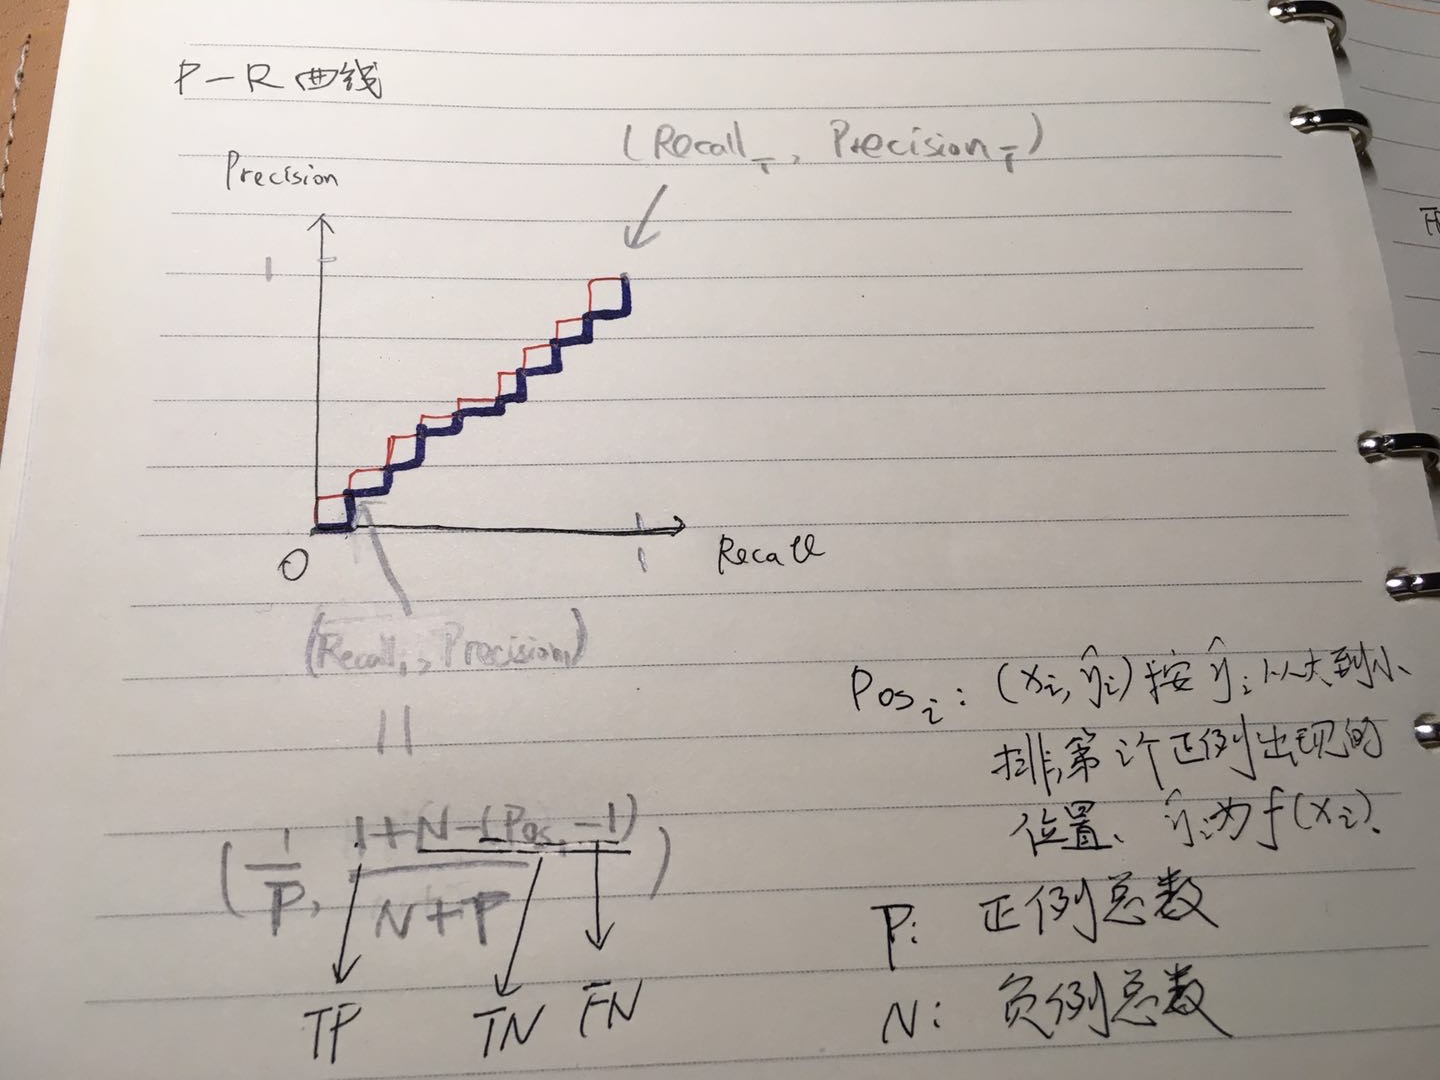 P-R 曲线
(Recall_T, Precision_T)
Precision
1
O
1
Recall
(Recall₁, Precision₁)
=
(1/P, (1+N-(Pos₁-1))/(N+P))
TP TN FN
Pos_i: (x_i, ŷ_i) 按 ŷ_i 从大到小
排,第i个正例出现的
位置、ŷ_i为f(x_i).
P: 正例总数
N: 负例总数